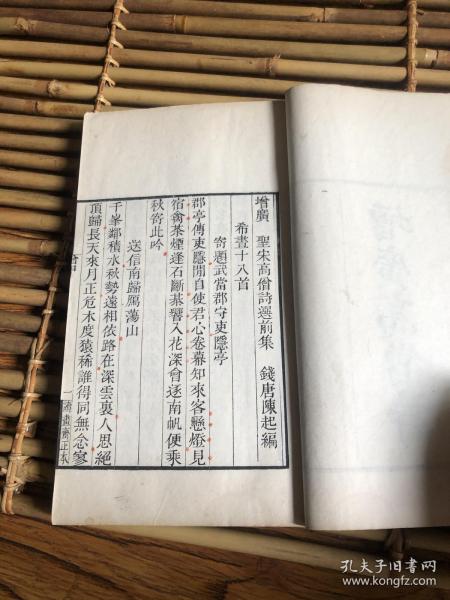 增廣 聖宋高僧詩選前集 錢唐陳起編
希晝十八首
寄題武當郡守吏隱亭
郡亭傳吏隱閒自使君心卷幕知來客懸燈見
宿禽茶煙逢石斷棊響入花深會逐南帆便乘
秋寄此吟
送信南歸鴈蕩山
千峯鄰積水秋勢遠相依路在深雲裏人思絕
頂歸長天來月正危木度猿稀誰得同無念寥
孔夫子旧书网
www.kongfz.com